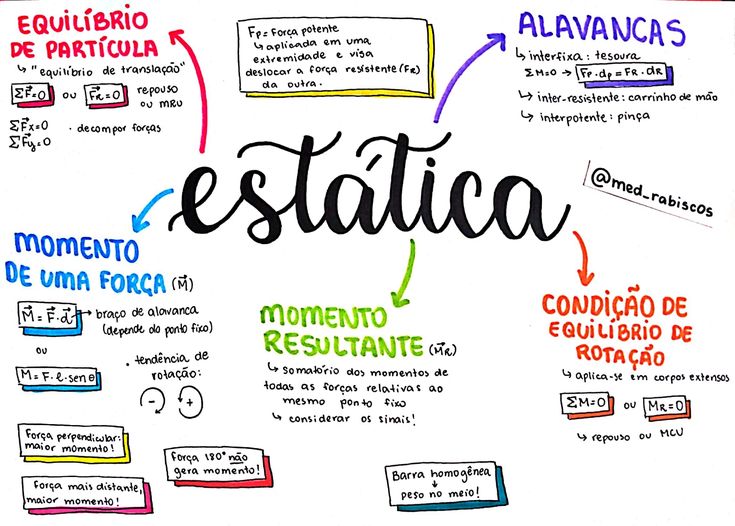 EQUILÍBRIO
DE PARTÍCULA
↳ "equilíbrio de translação"
ΣF⃗=0 ou F⃗R=0 repouso
ou MRU
ΣFx=0 · decompor forças
ΣFy=0
Fp=força potente
↳ aplicada em uma
extremidade e visa
deslocar a força resistente (FR)
da outra.
ALAVANCAS
↳ interfixa: tesoura
ΣM=0 → Fp·dp=FR·dR
↳ inter-resistente: carrinho de mão
↳ interpotente: pinça
estática
@med_rabiscos
MOMENTO
DE UMA FORÇA (M⃗)
M⃗=F⃗·d⃗ → braço de alavanca
(depende do ponto fixo)
ou
M=F·l·senθ
· tendência de
rotação:
- +
Força perpendicular:
maior momento!
Força mais distante,
maior momento!
Força 180° não
gera momento!
MOMENTO
RESULTANTE (M⃗R)
↳ somatório dos momentos de
todas as forças relativas ao
mesmo ponto fixo
↳ considerar os sinais!
Barra homogênea
↳ peso no meio!
CONDIÇÃO DE
EQUILÍBRIO DE
ROTAÇÃO
↳ aplica-se em corpos extensos
ΣM=0 ou MR=0
↳ repouso ou MCU